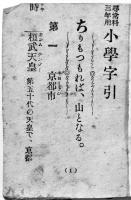 尋常科
三年用
小學字引
ちりもつもれば、山となる。
第一 京都市
桓武天皇 第五十代の天皇で、京都
時
(1)